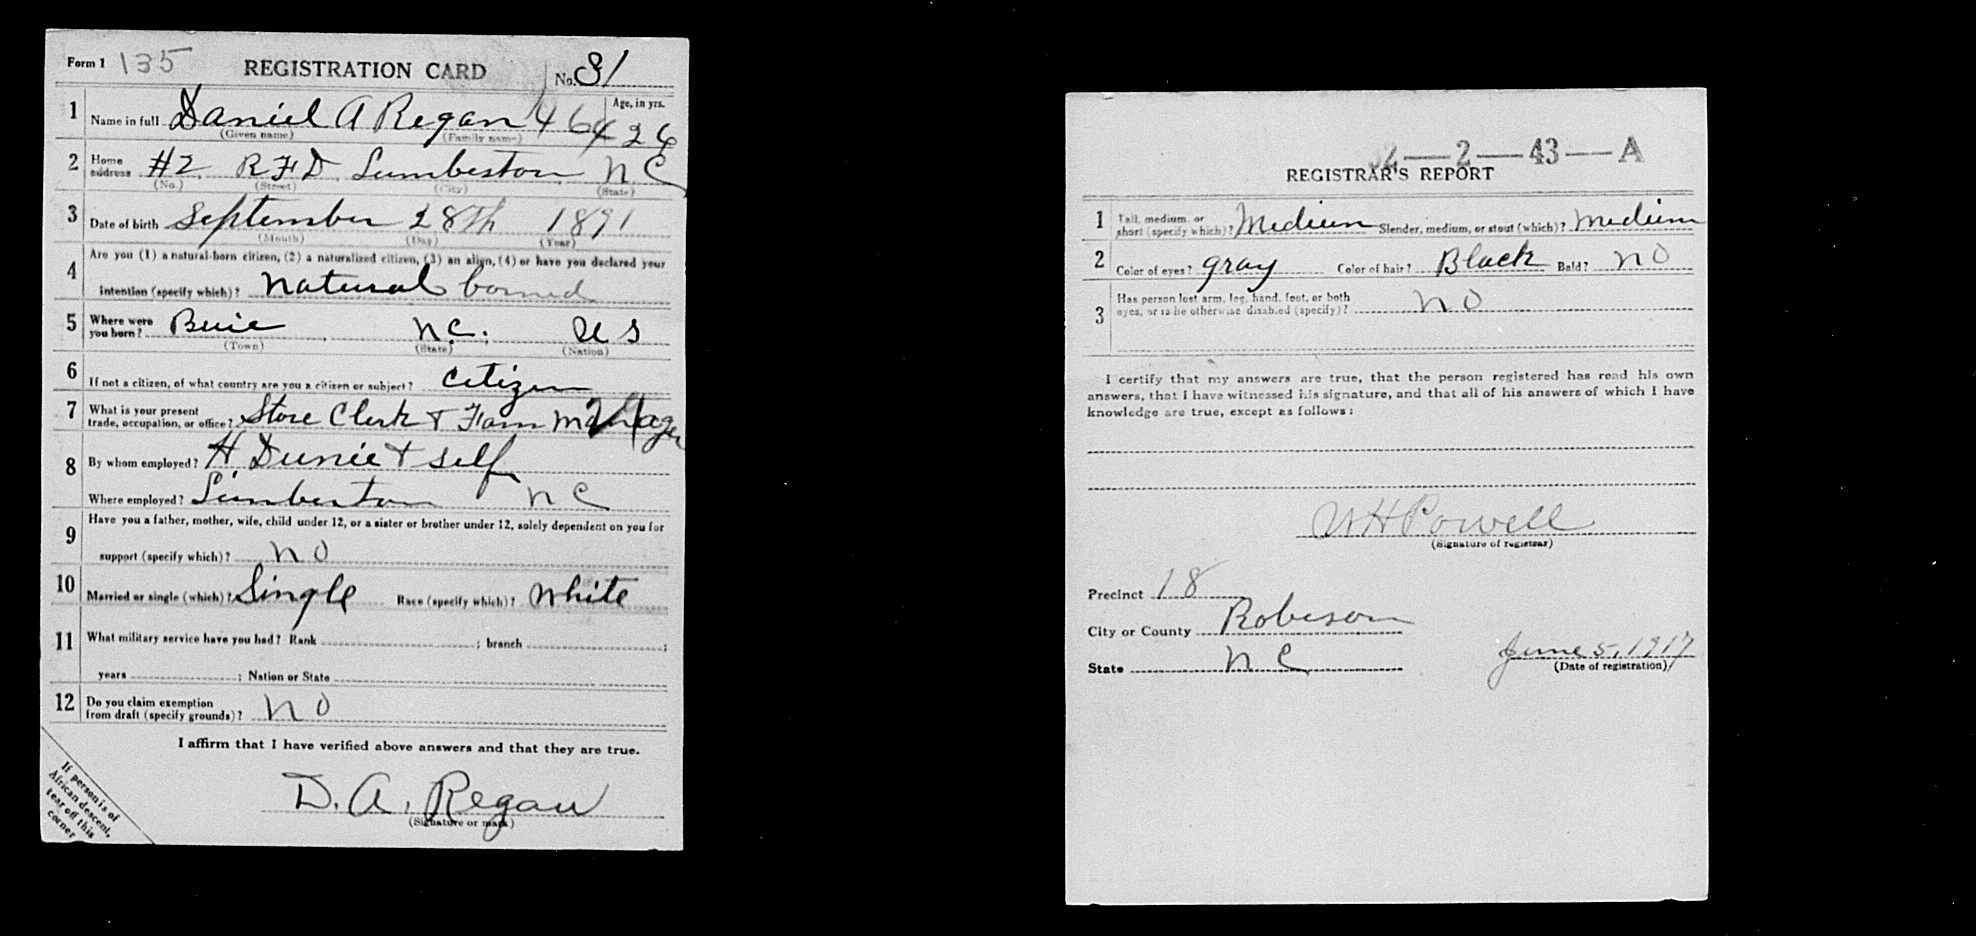 Form 1 135 REGISTRATION CARD No. 31
1 Name in full Daniel A Regan 464 Age, in yrs. 26
(Given name) (Family name)
2 Home address #2 RFD Lumberton NC
(No.) (Street) (City) (State)
3 Date of birth September 28th 1891
(Month) (Day) (Year)
4 Are you (1) a natural-born citizen, (2) a naturalized citizen, (3) an alien, (4) or have you declared your
intention (specify which)? natural borned
5 Where were you born? Buie N.C. U S
(Town) (State) (Nation)
6 If not a citizen, of what country are you a citizen or subject? citizen
7 What is your present trade, occupation, or office? Store Clerk & Farm Manager
8 By whom employed? & self
Where employed? Lumberton N C
9 Have you a father, mother, wife, child under 12, or a sister or brother under 12, solely dependent on you for
support (specify which)? no
10 Married or single (which)? Single Race (specify which)? White
11 What military service have you had? Rank ; branch ;
years ; Nation or State
12 Do you claim exemption from draft (specify grounds)? no
I affirm that I have verified above answers and that they are true.
D. A. Regan
(Signature or mark)
If person is of
African descent,
tear off this
corner
2—43—A
REGISTRAR'S REPORT
1 Tall, medium, or short (specify which)? Medium Slender, medium, or stout (which)? Medium
2 Color of eyes? gray Color of hair? Black Bald? no
3 Has person lost arm, leg, hand, foot, or both
eyes, or is he otherwise disabled (specify)? no
I certify that my answers are true, that the person registered has read his own
answers, that I have witnessed his signature, and that all of his answers of which I have
knowledge are true, except as follows:
W H Powell
(Signature of registrar)
Precinct 18
City or County Robeson
State N C June 5, 1917
(Date of registration)